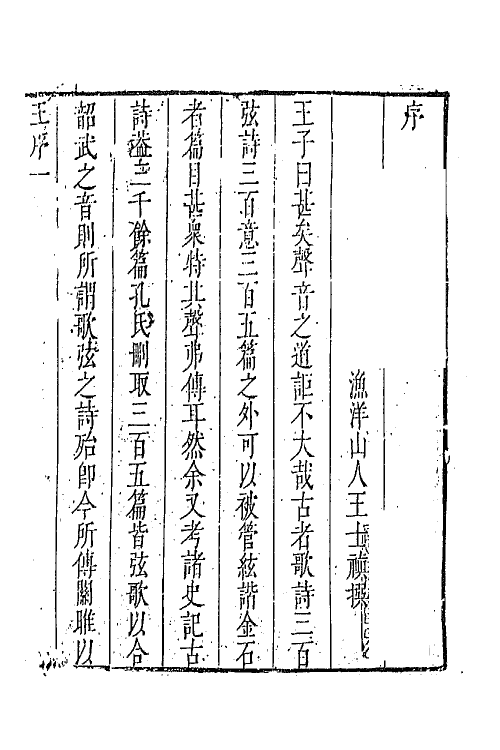 序
漁洋山人王士禎撰
王子曰甚矣聲音之道詎不大哉古者歌詩三百
弦詩三百意三百五篇之外可以被管絃諧金石
者篇目甚衆特其聲弗傳耳然余又考諸史記古
詩溢三千餘篇孔氏刪取三百五篇皆弦歌以合
韶武之音則所謂歌弦之詩殆卽今所傳關雎以
王序一